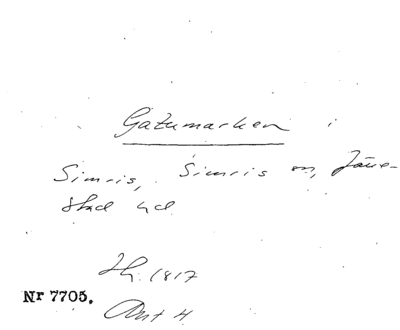 Gatumarken i
Simris, Simris sn, Järre-
stad hd
Hg. 1817
Nr 7705.
Avt 4